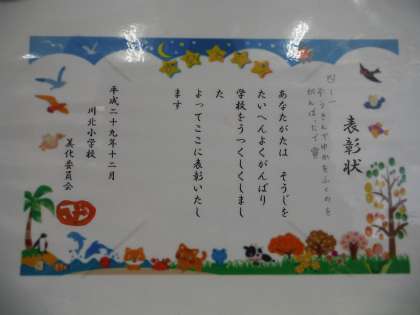 表彰状
四ー一
ぞうきんでゆかをふくのを
がんばったで賞
あなたがたは そうじを
たいへんよくがんばり
学校をうつくしくしまし
た
よってここに表彰いたし
ます
平成二十九年十二月
川北小学校
美化委員会